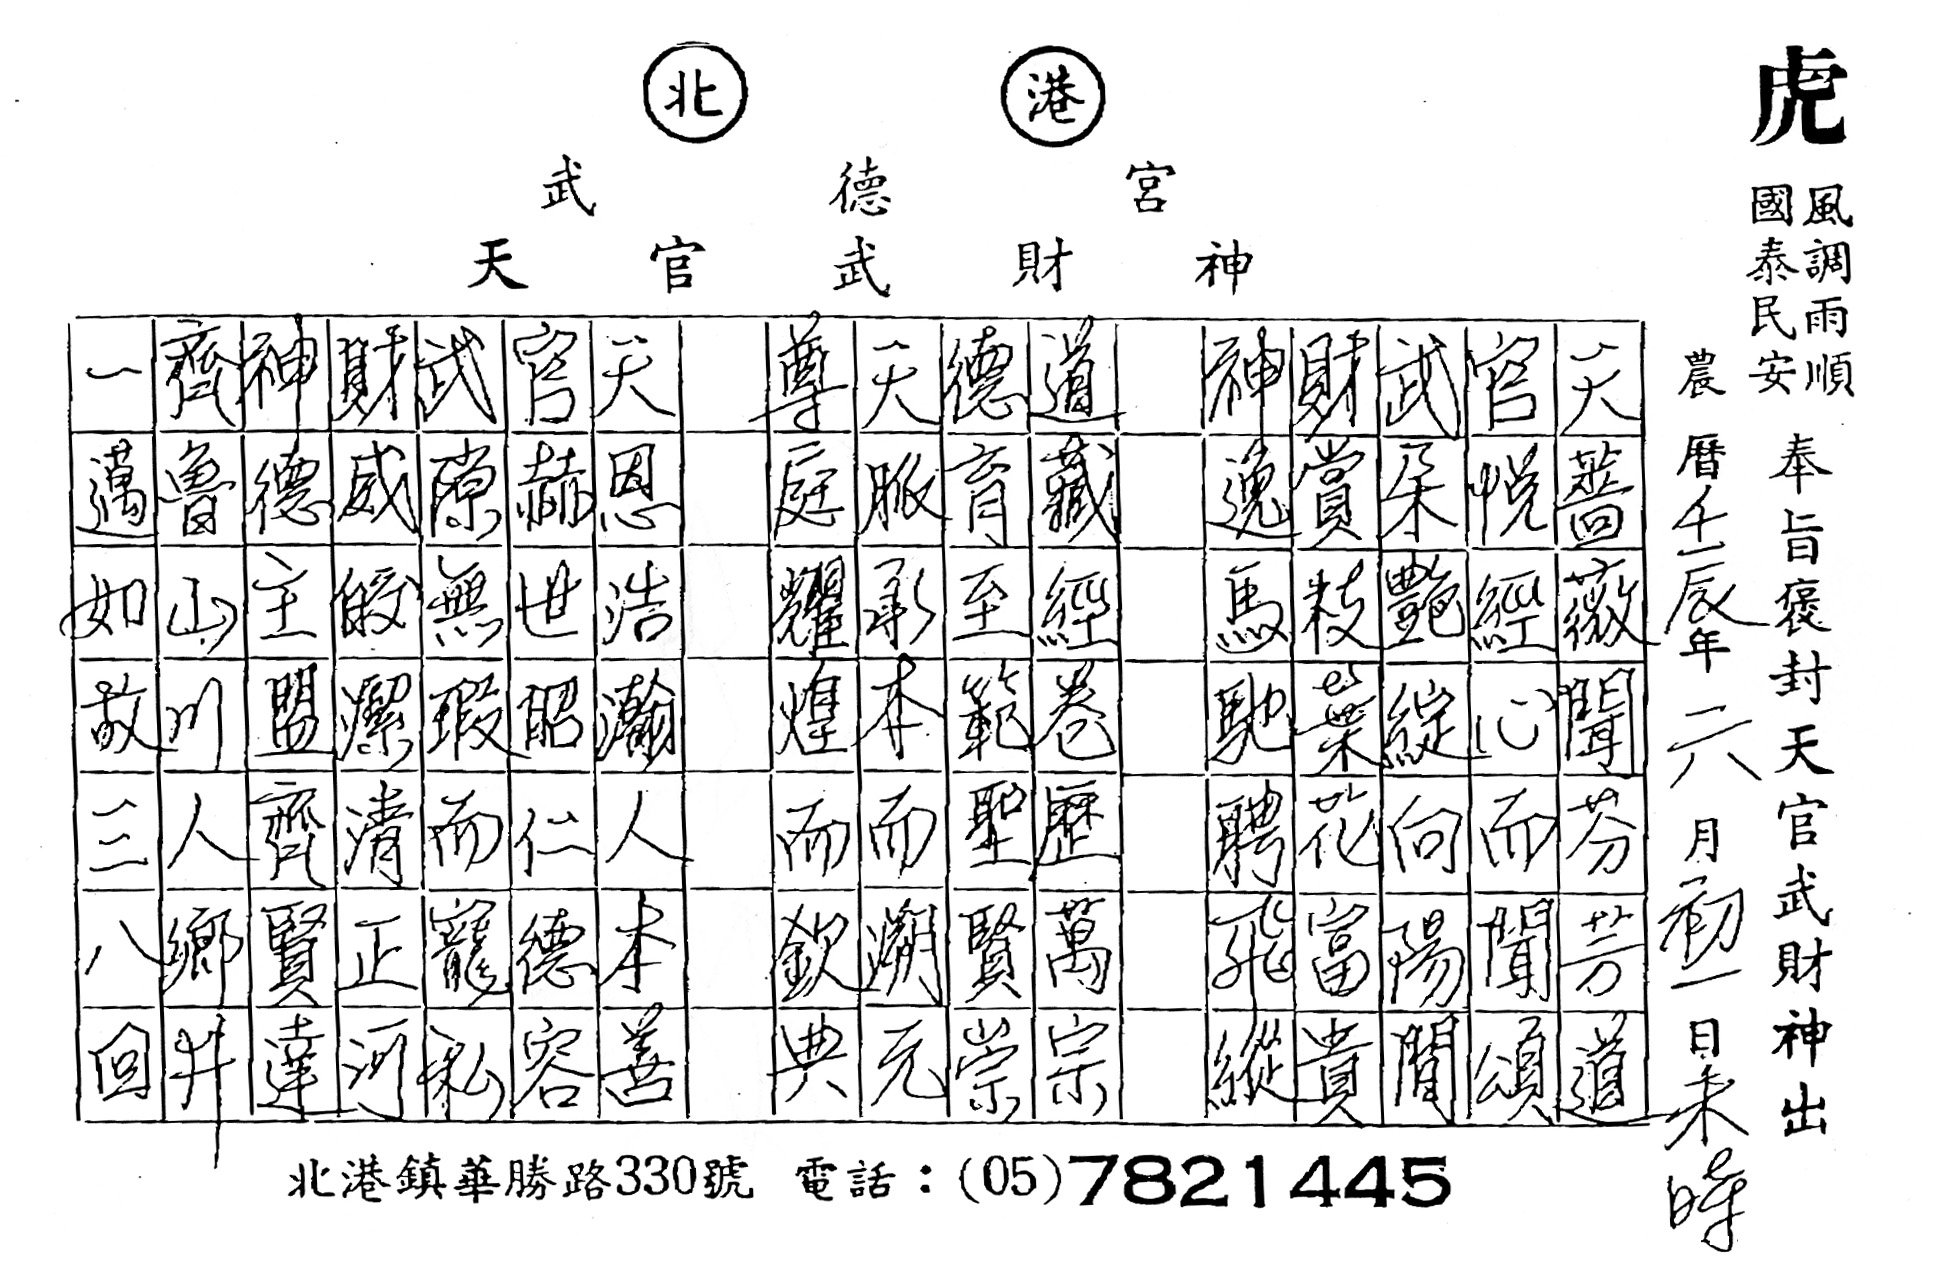 虎
風調雨順
國泰民安
奉旨褒封天官武財神出
農曆壬辰年六月初一日未時
北港
武德宮
天官武財神
天薔薇聞芬芳道
官悅經心而聞頌
武朵艷綻向陽開
財賞枝葉花富貴
神逸馬馳聘飛縱
道藏經卷歷萬宗
德育至範聖賢崇
天脈承本而溯元
尊庭耀煌而欽典
天恩浩瀚人本善
官赫世昭仁德容
武隙無瑕而寵私
財威皎潔清正河
神德主盟齊賢達
齊魯山川人鄉井
一邁如故三八回
北港鎮華勝路330號 電話：(05)7821445